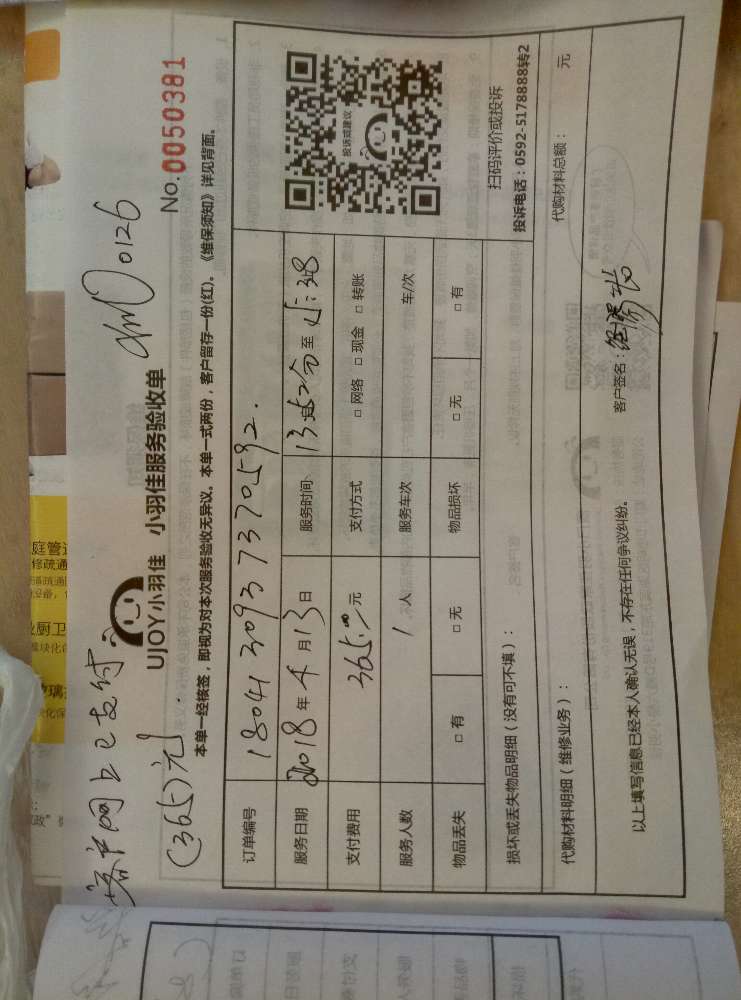 客户网上已支付
(365)元.
0126
UJOY小羽佳 小羽佳服务验收单
No.0050381
本单一经核签，即视为对本次服务验收无异议。本单一式两份，客户留存一份(红)。《维保须知》详见背面。
订单编号 180413093737 0592.
服务日期 2018年4月13日 服务时间 13:52分至15:38
支付费用 365.00元 支付方式 □ 网络 □ 现金 □ 转账
服务人数 1人 服务车次 车/次
物品丢失 □ 有 □ 无 物品损坏 □ 无 □ 有
投诉或建议
扫码评价或投诉
投诉电话：0592-5178888转2
损坏或丢失物品明细（没有可不填）：
代购材料明细（维修业务）： 代购材料总额： 元
以上填写信息已经本人确认无误，不存在任何争议纠纷。 客户签名：
庭管道
修疏通
厨卫